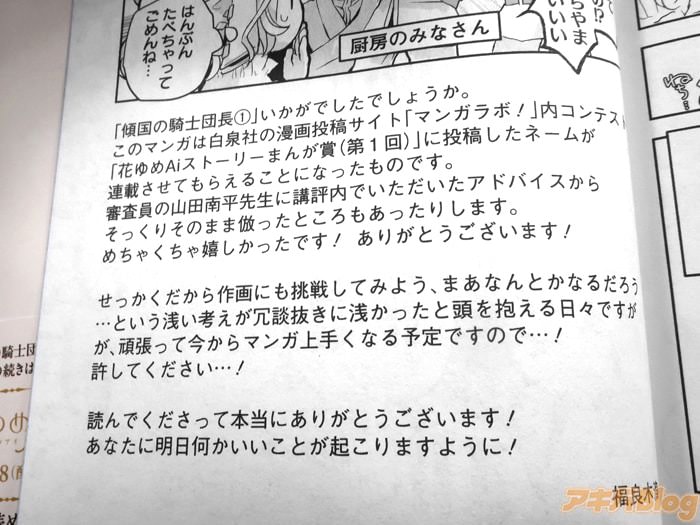 はんぶん
たべちゃって
ごめんね…
厨房のみなさん
「傾国の騎士団長①」いかがでしたでしょうか。
このマンガは白泉社の漫画投稿サイト「マンガラボ！」内コンテスト
「花ゆめAiストーリーまんが賞（第１回）」に投稿したネームが
連載させてもらえることになったものです。
審査員の山田南平先生に講評内でいただいたアドバイスから
そっくりそのまま倣ったところもあったりします。
めちゃくちゃ嬉しかったです！ ありがとうございます！
せっかくだから作画にも挑戦してみよう、まあなんとかなるだろう
…という浅い考えが冗談抜きに浅かったと頭を抱える日々ですが
が、頑張って今からマンガ上手くなる予定ですので…！
許してください…！
読んでくださって本当にありがとうございます！
あなたに明日何かいいことが起こりますように！
福良木
アキバBlog